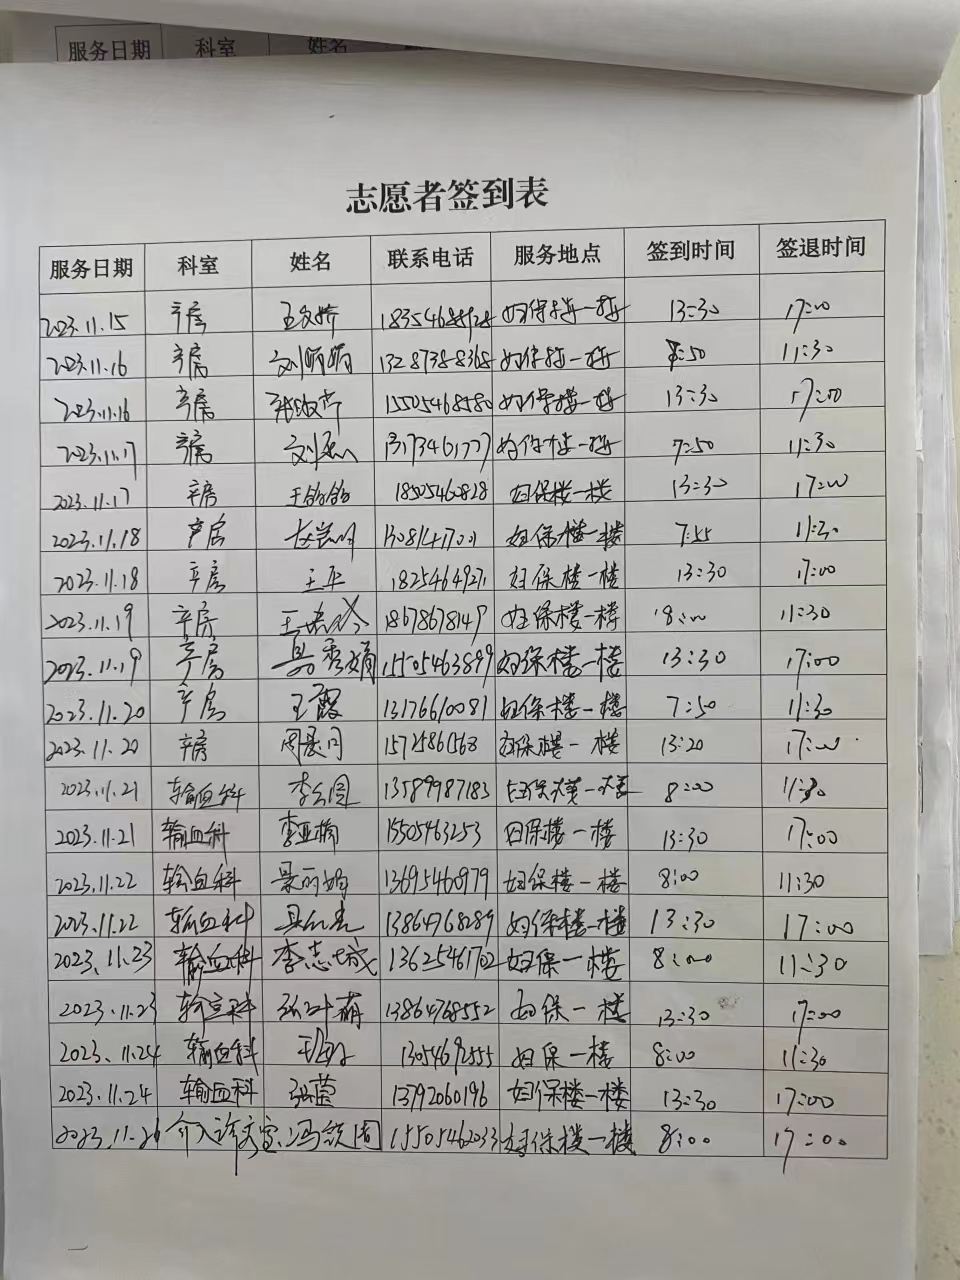 服务日期 科室 姓名
志愿者签到表
服务日期 科室 姓名 联系电话 服务地点 签到时间 签退时间
2023.11.15 产房 妇保楼一楼 13:30 17:00
2023.11.16 产房 刘娟娟 13287388368 妇保楼一楼 7:50 11:30
2023.11.16 产房 15505468580 妇保楼一楼 13:30 17:00
2023.11.17 产房 13173461777 妇保楼一楼 7:50 11:30
2023.11.17 产房 18505460828 妇保楼一楼 13:30 17:00
2023.11.18 产房 妇保楼一楼 7:55 11:30
2023.11.18 产房 王平 18254649271 妇保楼一楼 13:30 17:00
2023.11.19 产房 18678678149 妇保楼一楼 8:00 11:30
2023.11.19 产房 15505463899 妇保楼一楼 13:30 17:00
2023.11.20 产房 王霞 13176610081 妇保楼一楼 7:50 11:30
2023.11.20 产房 妇保楼一楼 13:20 17:00
2023.11.21 输血科 13589987183 妇保楼一楼 8:00 11:30
2023.11.21 输血科 李亚楠 15505463253 妇保楼一楼 13:30 17:00
2023.11.22 输血科 13695460979 妇保楼一楼 8:00 11:30
2023.11.22 输血科 13864768289 妇保楼一楼 13:30 17:00
2023.11.23 输血科 李志城 13625461702 妇保一楼 8:00 11:30
2023.11.23 输血科 张叶萌 13864768552 妇保一楼 13:30 17:00
2023.11.24 输血科 13054692555 妇保一楼 8:00 11:30
2023.11.24 输血科 张蕾 13792060196 妇保楼一楼 13:30 17:00
介入诊疗室 15505462033 妇保楼一楼 8:00 17:00